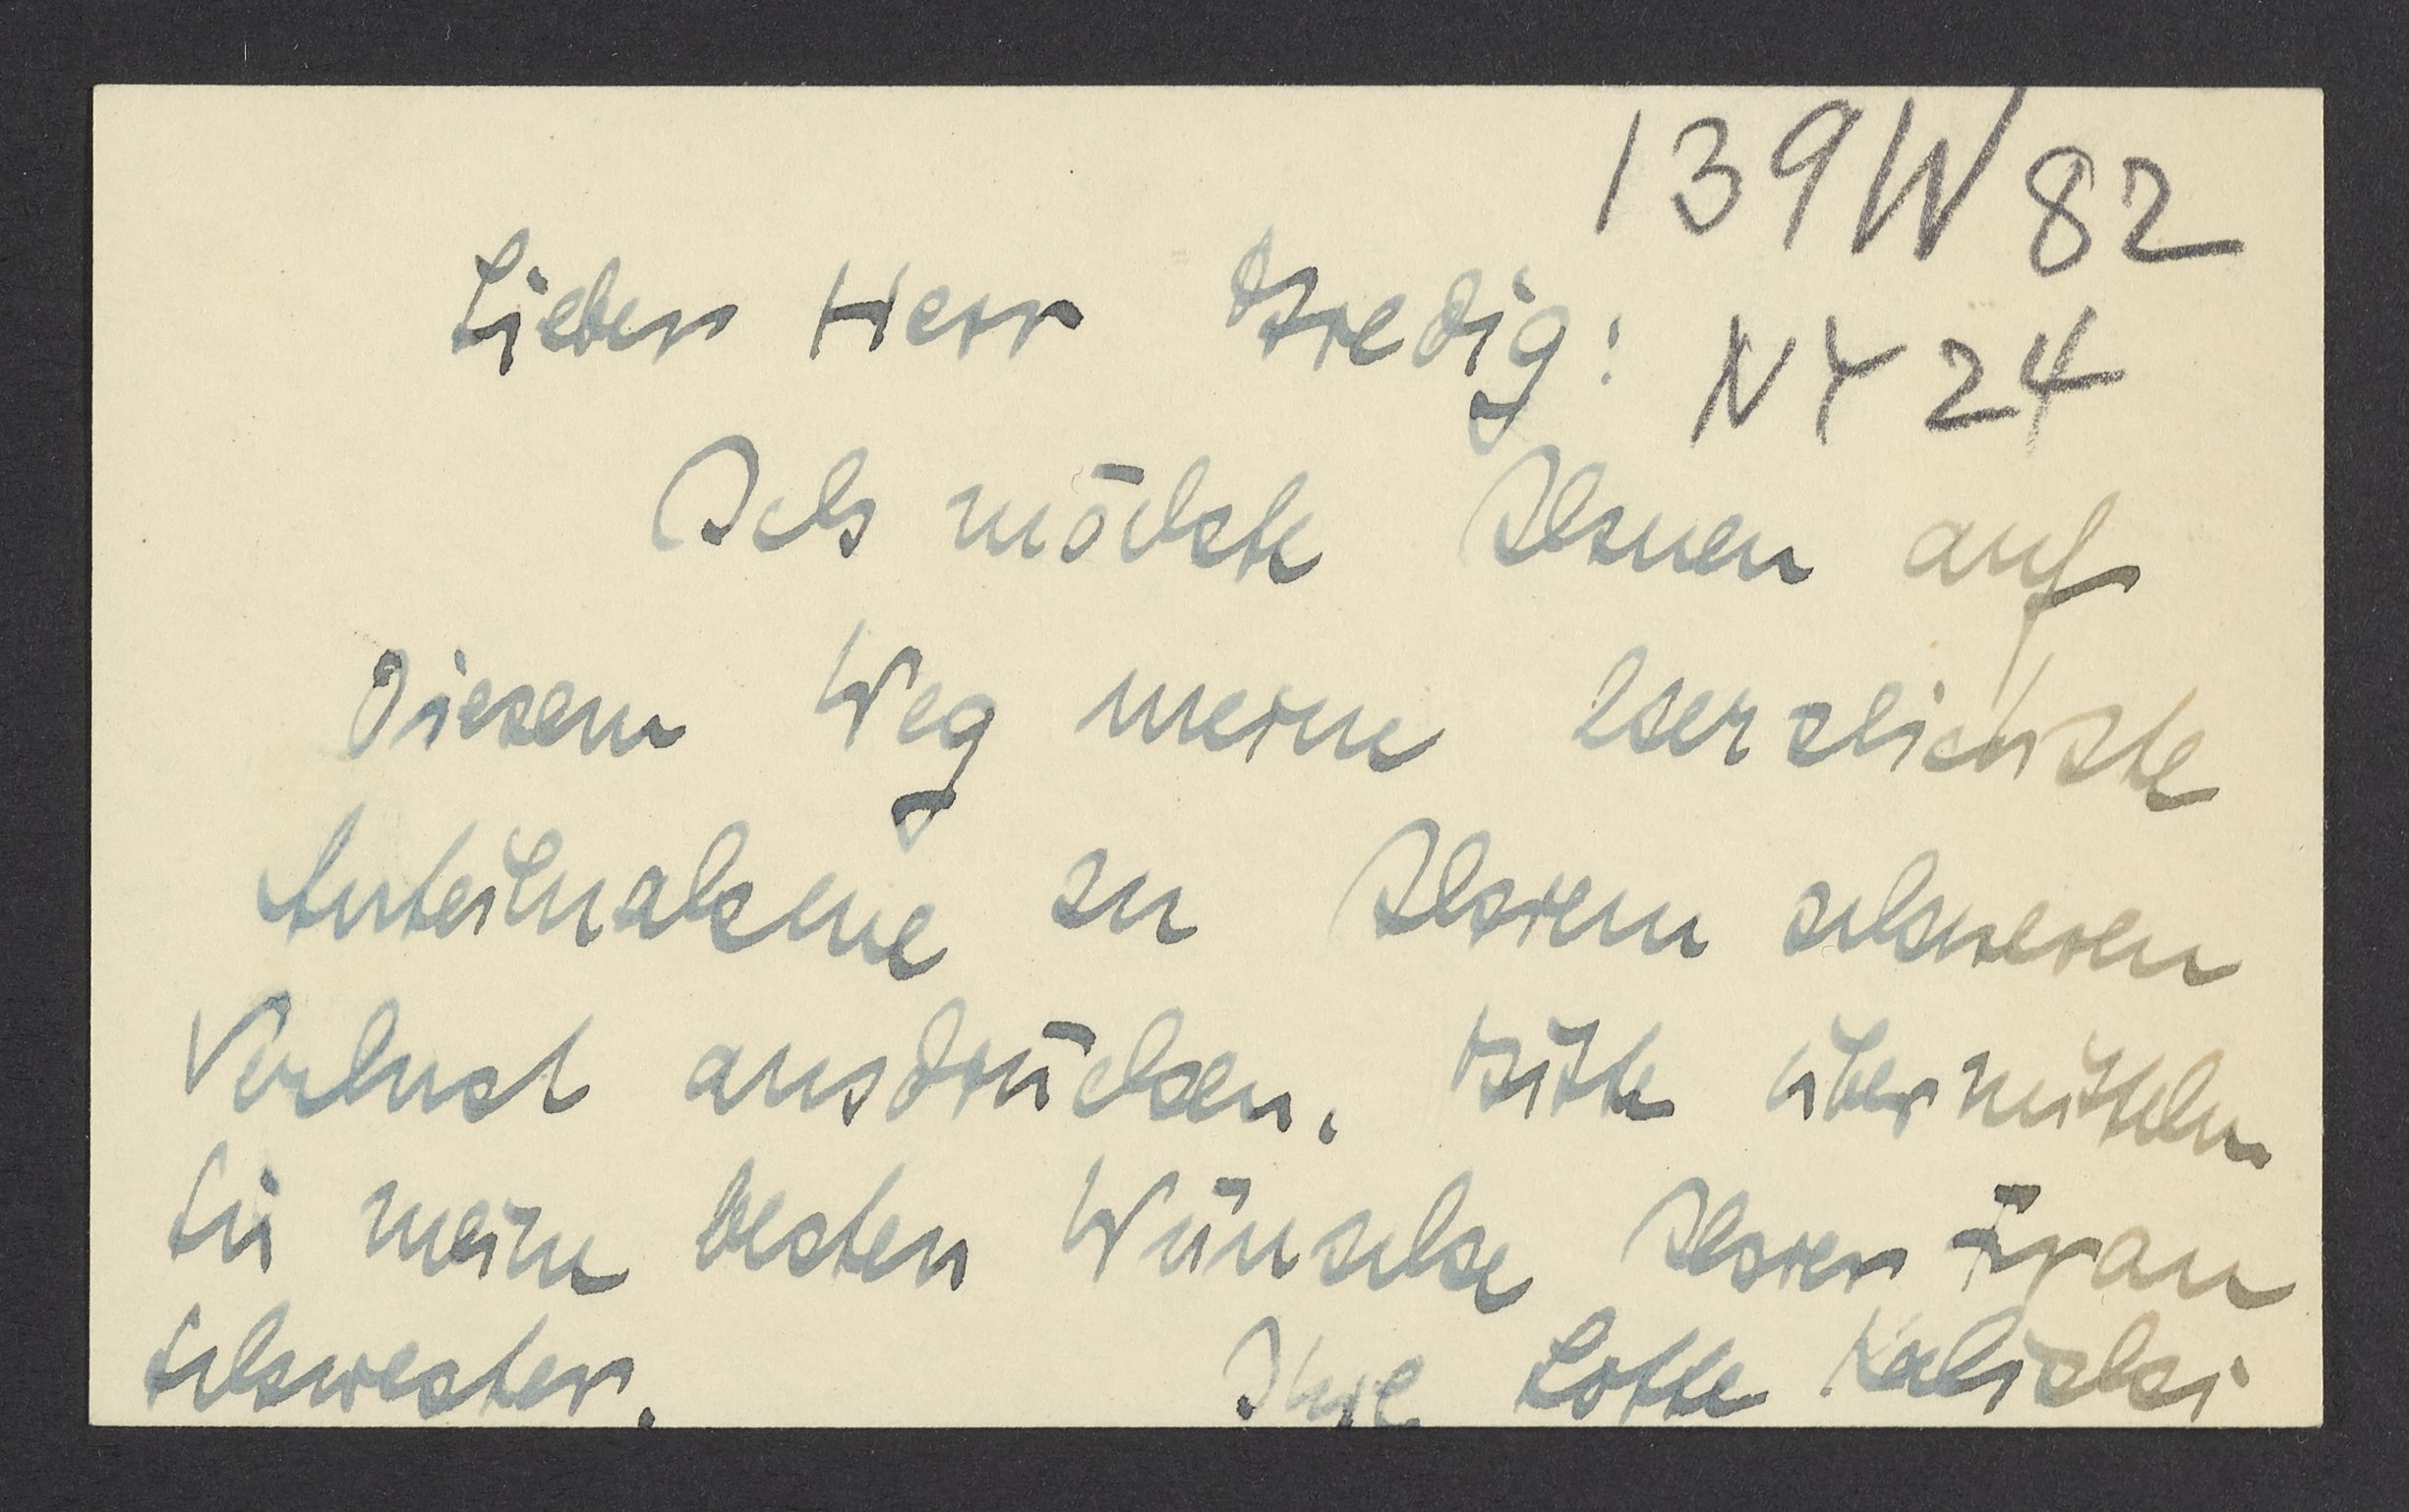 139 W 82
NY 24
Lieber Herr Bredig:
Ich möchte Ihnen auf
diesem Weg meine herzlichste
Anteilnahme zu Ihrem schweren
Verlust ausdrücken. Bitte übermitteln
Sie meine besten Wünsche Ihrer Frau
Schwester.
Ihre Lotte Kaliski